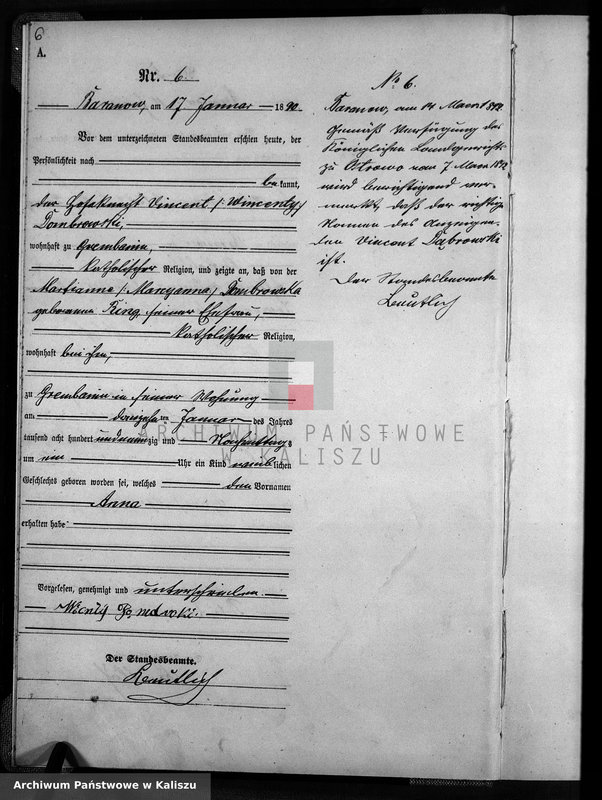 6
A.
Nr. 6.
Baranow, am 17 Januar 1890.
Vor dem unterzeichneten Standesbeamten erschien heute, der
Persönlichkeit nach
bekannt,
der Vincent /Wincenty/
Dombrowski,
wohnhaft zu Grembanin,
katholischer Religion, und zeigte an, daß von der
Marianna /Maryanna/ Dombrowska
geborenen seiner Ehefrau,
katholischer Religion,
wohnhaft bei ihm,
zu Grembanin in seiner Wohnung
am Januar des Jahres
tausend acht hundert und neunzig und Nachmittags
um ein Uhr ein Kind weiblichen
Geschlechts geboren worden sei, welches den Vornamen
Anna
erhalten habe
Vorgelesen, genehmigt und unterschrieben.
Der Standesbeamte.
No 6.
Baranow, am 14 Maerz
Gemäß Verfügung des
Königlichen Landgerichts
zu Ostrowo vom 7 Maerz
wird berichtigend ver-
merkt, daß der richtige
Namen des Anzeigen-
den Vincent Dąbrowski
ist.
Der Standesbeamte
ARCHIWUM PAŃSTWOWE
W KALISZU
Archiwum Państwowe w Kaliszu